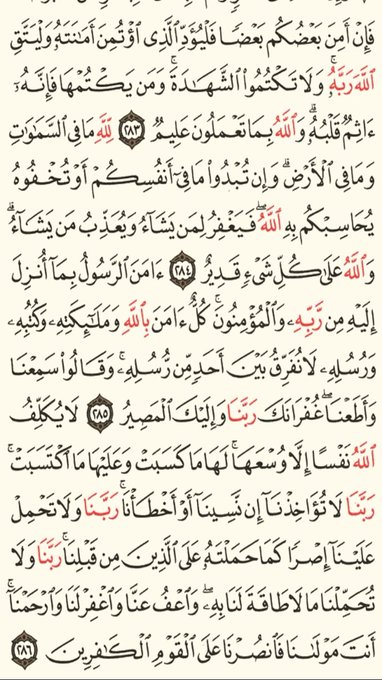 فَإِنْ أَمِنَ بَعْضُكُم بَعْضًا فَلْيُؤَدِّ ٱلَّذِى ٱؤْتُمِنَ أَمَٰنَتَهُۥ وَلْيَتَّقِ
ٱللَّهَ رَبَّهُۥۗ وَلَا تَكْتُمُوا۟ ٱلشَّهَٰدَةَۚ وَمَن يَكْتُمْهَا فَإِنَّهُۥٓ
ءَاثِمٌ قَلْبُهُۥۗ وَٱللَّهُ بِمَا تَعْمَلُونَ عَلِيمٌ ٢٨٣ لِّلَّهِ مَا فِى ٱلسَّمَٰوَٰتِ
وَمَا فِى ٱلْأَرْضِۗ وَإِن تُبْدُوا۟ مَا فِىٓ أَنفُسِكُمْ أَوْ تُخْفُوهُ
يُحَاسِبْكُم بِهِ ٱللَّهُۖ فَيَغْفِرُ لِمَن يَشَآءُ وَيُعَذِّبُ مَن يَشَآءُۗ
وَٱللَّهُ عَلَىٰ كُلِّ شَىْءٍ قَدِيرٌ ٢٨٤ ءَامَنَ ٱلرَّسُولُ بِمَآ أُنزِلَ
إِلَيْهِ مِن رَّبِّهِۦ وَٱلْمُؤْمِنُونَۚ كُلٌّ ءَامَنَ بِٱللَّهِ وَمَلَٰٓئِكَتِهِۦ وَكُتُبِهِۦ
وَرُسُلِهِۦ لَا نُفَرِّقُ بَيْنَ أَحَدٍ مِّن رُّسُلِهِۦۚ وَقَالُوا۟ سَمِعْنَا
وَأَطَعْنَاۖ غُفْرَانَكَ رَبَّنَا وَإِلَيْكَ ٱلْمَصِيرُ ٢٨٥ لَا يُكَلِّفُ
ٱللَّهُ نَفْسًا إِلَّا وُسْعَهَاۚ لَهَا مَا كَسَبَتْ وَعَلَيْهَا مَا ٱكْتَسَبَتْۗ
رَبَّنَا لَا تُؤَاخِذْنَآ إِن نَّسِينَآ أَوْ أَخْطَأْنَاۚ رَبَّنَا وَلَا تَحْمِلْ
عَلَيْنَآ إِصْرًا كَمَا حَمَلْتَهُۥ عَلَى ٱلَّذِينَ مِن قَبْلِنَاۚ رَبَّنَا وَلَا
تُحَمِّلْنَا مَا لَا طَاقَةَ لَنَا بِهِۦۖ وَٱعْفُ عَنَّا وَٱغْفِرْ لَنَا وَٱرْحَمْنَآۚ
أَنتَ مَوْلَىٰنَا فَٱنصُرْنَا عَلَى ٱلْقَوْمِ ٱلْكَٰفِرِينَ ٢٨٦